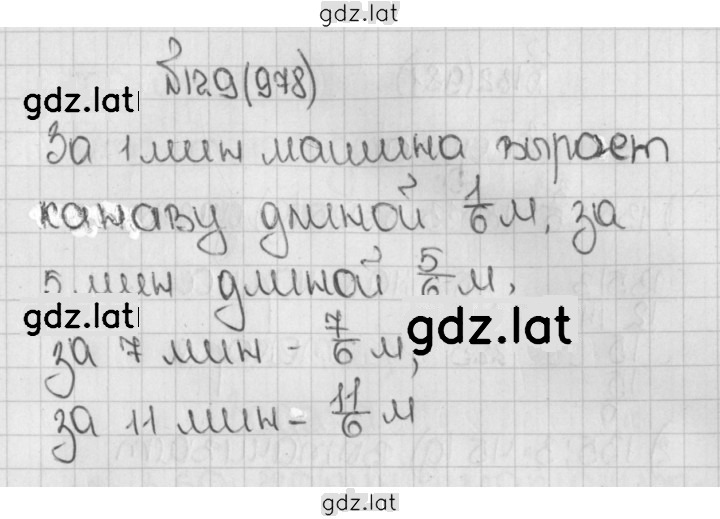 gdz.lat
№129(978)
gdz.lat
За 1 мин машина выроет
канаву длиной 1/6 м, за
5 мин длиной 5/6 м,
gdz.lat
за 7 мин - 7/6 м,
gdz.lat
за 11 мин - 11/6 м
gdz.lat